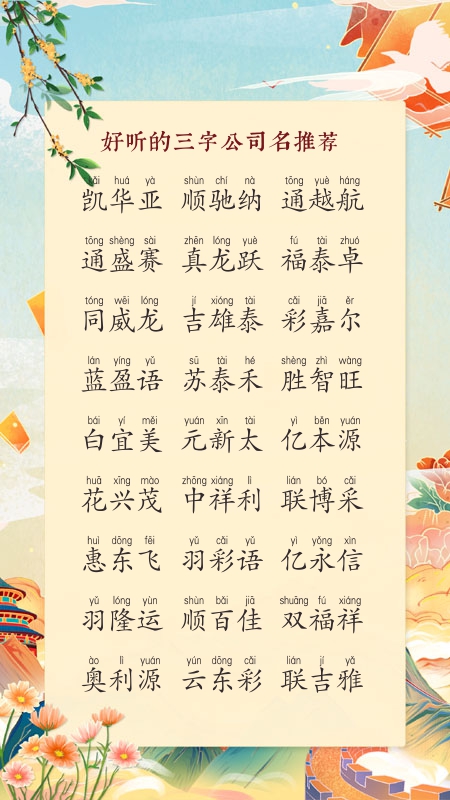 好听的三字公司名推荐
kǎi huá yà shùn chí nà tōng yuè háng
凯华亚 顺驰纳 通越航
tōng shèng sài zhēn lóng yuè fú tài zhuó
通盛赛 真龙跃 福泰卓
tóng wēi lóng jí xióng tài cǎi jiā ěr
同威龙 吉雄泰 彩嘉尔
lán yíng yǔ sū tài hé shèng zhì wàng
蓝盈语 苏泰禾 胜智旺
bái yí měi yuán xīn tài yì běn yuán
白宜美 元新太 亿本源
huā xīng mào zhōng xiáng lì lián bó cǎi
花兴茂 中祥利 联博采
huì dōng fēi yǔ cǎi yǔ yì yǒng xìn
惠东飞 羽彩语 亿永信
yǔ lóng yùn shùn bǎi jiā shuāng fú xiáng
羽隆运 顺百佳 双福祥
ào lì yuán yún dōng cǎi lián jí yǎ
奥利源 云东彩 联吉雅